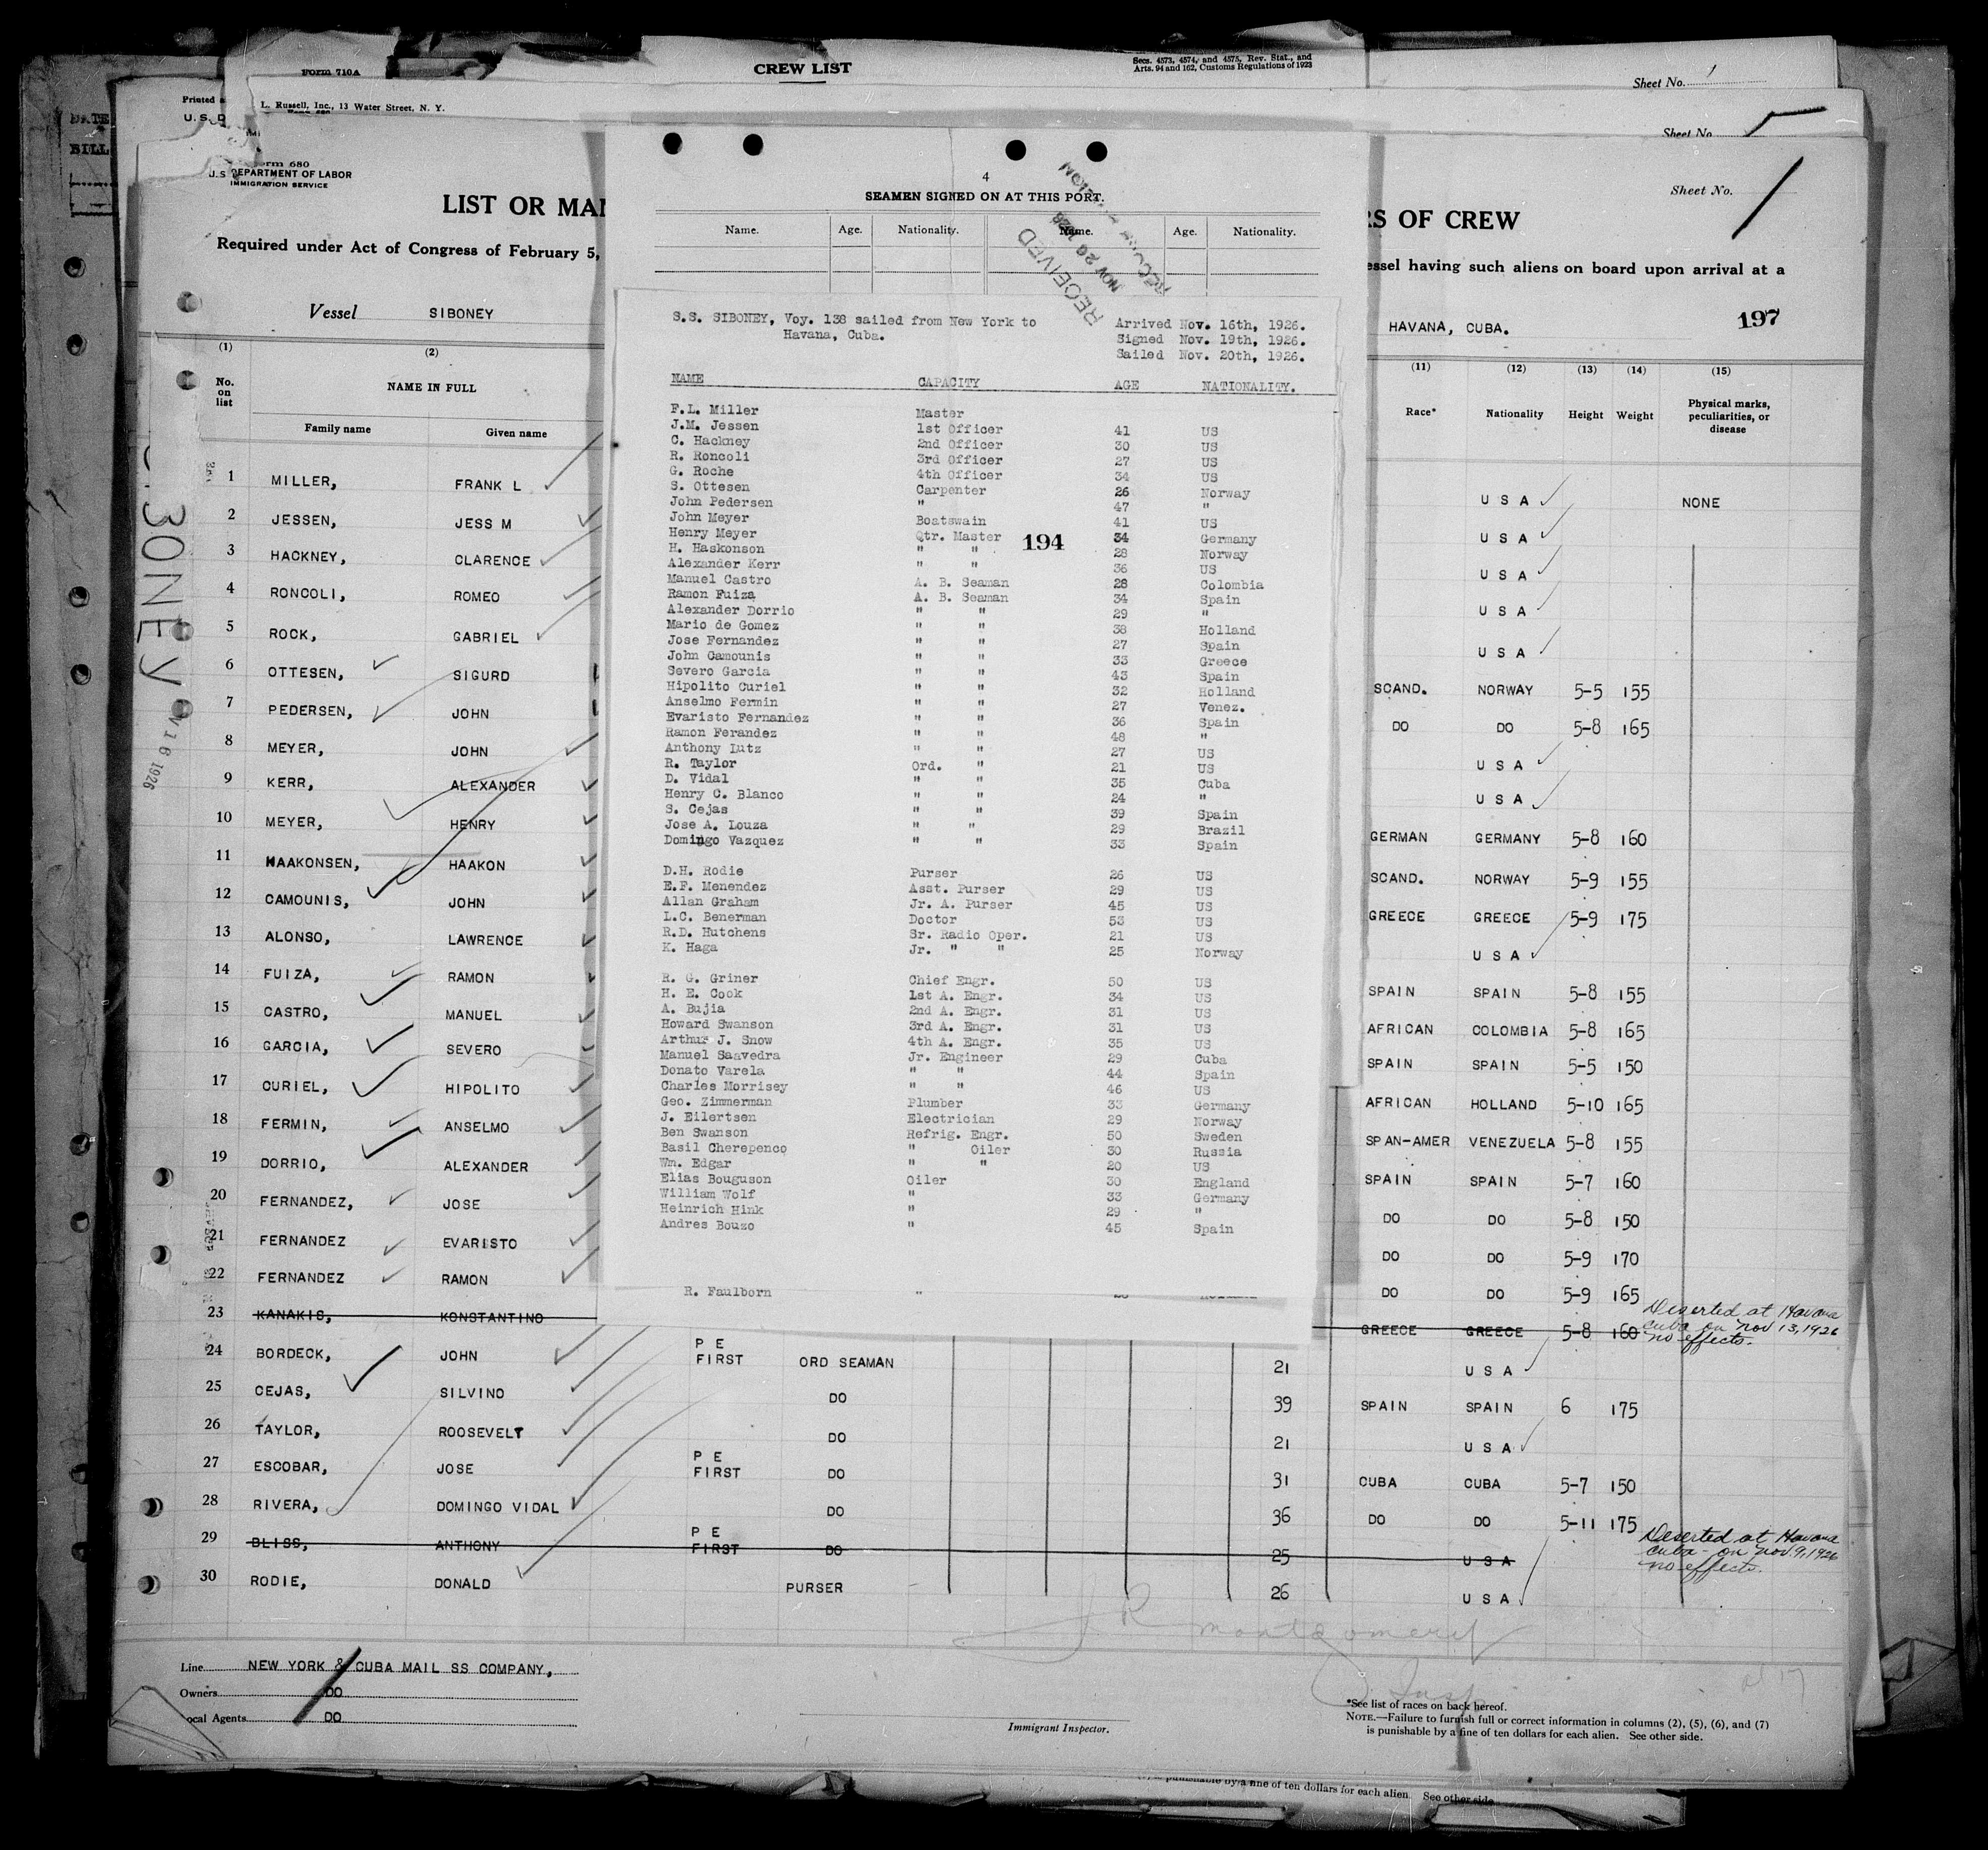 Form 710A
CREW LIST
Secs. 4573, 4574, and 4575, Rev. Stat., and
Arts. 94 and 162, Customs Regulations of 1923
Sheet No. 1
DATE
BILL
Printed a
L. Russell, Inc., 13 Water Street, N. Y.
U. S. D
Sheet No
orm 680
U. S. DEPARTMENT OF LABOR
IMMIGRATION SERVICE
Sheet No. 1
LIST OR MAN
RS OF CREW
Required under Act of Congress of February 5,
essel having such aliens on board upon arrival at a
Vessel SIBONEY
HAVANA, CUBA.
197
4
SEAMEN SIGNED ON AT THIS PORT.
Name. Age. Nationality. Name. Age. Nationality.
RECEIVED
NOV 26 1926
S.S. SIBONEY, Voy. 138 sailed from New York to
Havana, Cuba.
Arrived Nov. 16th, 1926.
Signed Nov. 19th, 1926.
Sailed Nov. 20th, 1926.
NAME CAPACITY AGE NATIONALITY.
F.L. Miller Master
J.M. Jessen 1st Officer 41 US
C. Hackney 2nd Officer 30 US
R. Roncoli 3rd Officer 27 US
G. Roche 4th Officer 34 US
S. Ottesen Carpenter 26 Norway
John Pedersen " 47 "
John Meyer Boatswain 41 US
Henry Meyer Qtr. Master 34 Germany
194
H. Haskonson " " 28 Norway
Alexander Kerr " " 36 US
Manuel Castro A. B. Seaman 28 Colombia
Ramon Fuiza A. B. Seaman 34 Spain
Alexander Dorrio " " 29 "
Mario de Gomez " " 38 Holland
Jose Fernandez " " 27 Spain
John Camounis " " 33 Greece
Severo Garcia " " 43 Spain
Hipolito Curiel " " 32 Holland
Anselmo Fermin " " 27 Venez.
Evaristo Fernandez " " 36 Spain
Ramon Ferandez " " 48 "
Anthony Lutz " " 27 US
R. Taylor Ord. " 21 US
D. Vidal " " 35 Cuba
Henry C. Blanco " " 24 "
S. Cejas " " 39 Spain
Jose A. Louza " " 29 Brazil
Domingo Vazquez " " 33 Spain
D.H. Rodie Purser 26 US
E.F. Menendez Asst. Purser 29 US
Allan Graham Jr. A. Purser 45 US
L.C. Benerman Doctor 53 US
R.D. Hutchens Sr. Radio Oper. 21 US
K. Haga Jr. " " 25 Norway
R. G. Griner Chief Engr. 50 US
H. E. Cook 1st A. Engr. 34 US
A. Bujia 2nd A. Engr. 31 US
Howard Swanson 3rd A. Engr. 31 US
Arthur J. Snow 4th A. Engr. 35 US
Manuel Saavedra Jr. Engineer 29 Cuba
Donato Varela " " 44 Spain
Charles Morrisey " " 46 US
Geo. Zimmerman Plumber 33 Germany
J. Eilertsen Electrician 29 Norway
Ben Swanson Refrig. Engr. 50 Sweden
Basil Cherepenco " Oiler 30 Russia
Wm. Edgar " " 20 US
Elias Bouguson Oiler 30 England
William Wolf " 33 Germany
Heinrich Hink " 29 "
Andres Bouzo " 45 Spain
R. Faulborn "
(1) (2) (11) (12) (13) (14) (15)
No. on list NAME IN FULL Race* Nationality Height Weight Physical marks, peculiarities, or disease
Family name Given name
1 MILLER, FRANK L U S A NONE
2 JESSEN, JESS M U S A
3 HACKNEY, CLARENCE U S A
4 RONCOLI, ROMEO U S A
5 ROCK, GABRIEL U S A
6 OTTESEN, SIGURD SCAND. NORWAY 5-5 155
7 PEDERSEN, JOHN DO DO 5-8 165
8 MEYER, JOHN U S A
9 KERR, ALEXANDER U S A
10 MEYER, HENRY GERMAN GERMANY 5-8 160
11 HAAKONSEN, HAAKON SCAND. NORWAY 5-9 155
12 CAMOUNIS, JOHN GREECE GREECE 5-9 175
13 ALONSO, LAWRENCE U S A
14 FUIZA, RAMON SPAIN SPAIN 5-8 155
15 CASTRO, MANUEL AFRICAN COLOMBIA 5-8 165
16 GARCIA, SEVERO SPAIN SPAIN 5-5 150
17 CURIEL, HIPOLITO AFRICAN HOLLAND 5-10 165
18 FERMIN, ANSELMO SPAN-AMER VENEZUELA 5-8 155
19 DORRIO, ALEXANDER SPAIN SPAIN 5-7 160
20 FERNANDEZ, JOSE DO DO 5-8 150
21 FERNANDEZ EVARISTO DO DO 5-9 170
22 FERNANDEZ RAMON DO DO 5-9 165
23 KANAKIS, KONSTANTINO GREECE GREECE 5-8 160 Deserted at Havana
Cuba on Nov 13, 1926
no effects.
24 BORDECK, JOHN P E FIRST ORD SEAMAN 21 U S A
25 CEJAS, SILVINO DO 39 SPAIN SPAIN 6 175
26 TAYLOR, ROOSEVELT DO 21 U S A
27 ESCOBAR, JOSE P E FIRST DO 31 CUBA CUBA 5-7 150
28 RIVERA, DOMINGO VIDAL DO 36 DO DO 5-11 175
29 BLISS, ANTHONY P E FIRST DO 25 U S A Deserted at Havana
Cuba on Nov 9, 1926
no effects.
30 RODIE, DONALD PURSER 26 U S A
SIBONEY
1926
J R Montgomery
Insp
Line NEW YORK & CUBA MAIL SS COMPANY,
Owners DO
ocal Agents DO
Immigrant Inspector.
*See list of races on back hereof.
NOTE.—Failure to furnish full or correct information in columns (2), (5), (6), and (7)
is punishable by a fine of ten dollars for each alien. See other side.
punishable by a fine of ten dollars for each alien. See other side